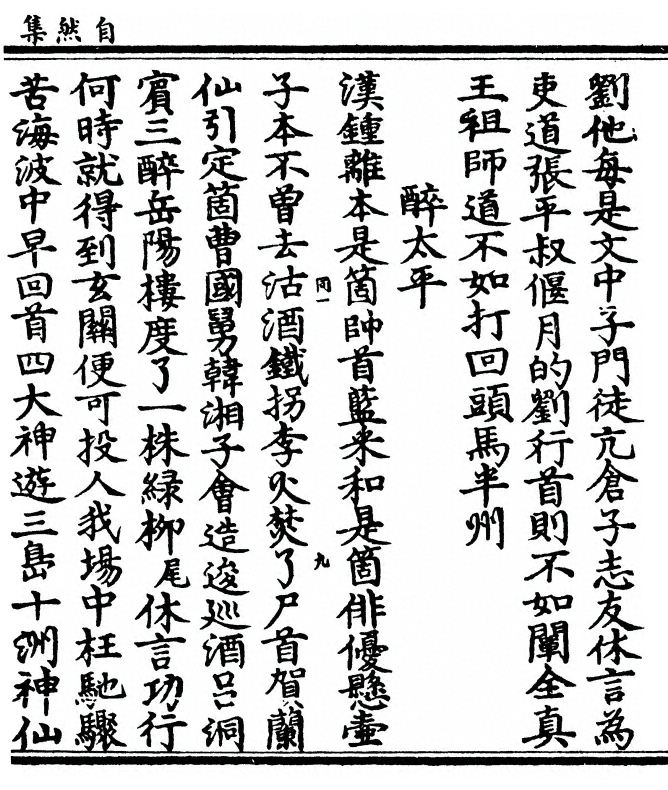 自然集
劉他每是文中子門徒亢倉子志友休言為
吏道張平叔偃月的劉行首則不如闡全真
王祖師道不如打回頭馬半州
醉太平
漢鍾離本是箇帥首藍采和是箇俳優懸壺
子本不曾去沽酒鐵拐李火焚了尸首賀蘭
仙引定箇曹國舅韓湘子會造逡巡酒呂洞
賓三醉岳陽樓度了一株綠柳尾休言功行
何時就得到玄關便可投人我場中枉馳驟
苦海波中早回首四大神遊三島十洲神仙
同一
九